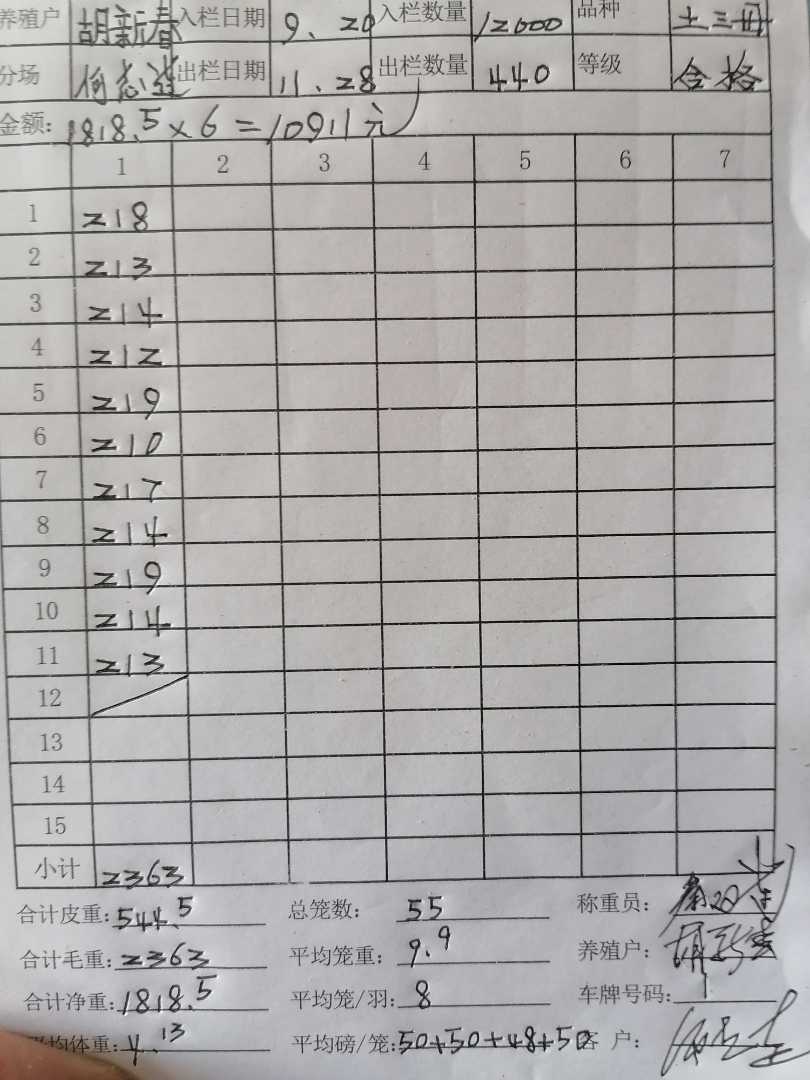 养殖户 胡新春 入栏日期 9、20 入栏数量 12000 品种 土三
分场 出栏日期 11.28 出栏数量 440 等级 合格
金额: 1818.5×6=10911元
1 2 3 4 5 6 7
1 218
2 213
3 214
4 212
5 219
6 210
7 217
8 214
9 219
10 214
11 213
12
13
14
15
小计 2363
合计皮重: 544.5 总笼数: 55 称重员:
合计毛重: 2363 平均笼重: 9.9 养殖户: 胡新春
合计净重: 1818.5 平均笼/羽: 8 车牌号码:
均体重: 4.13 平均磅/笼: 50+50+48+50 客 户: